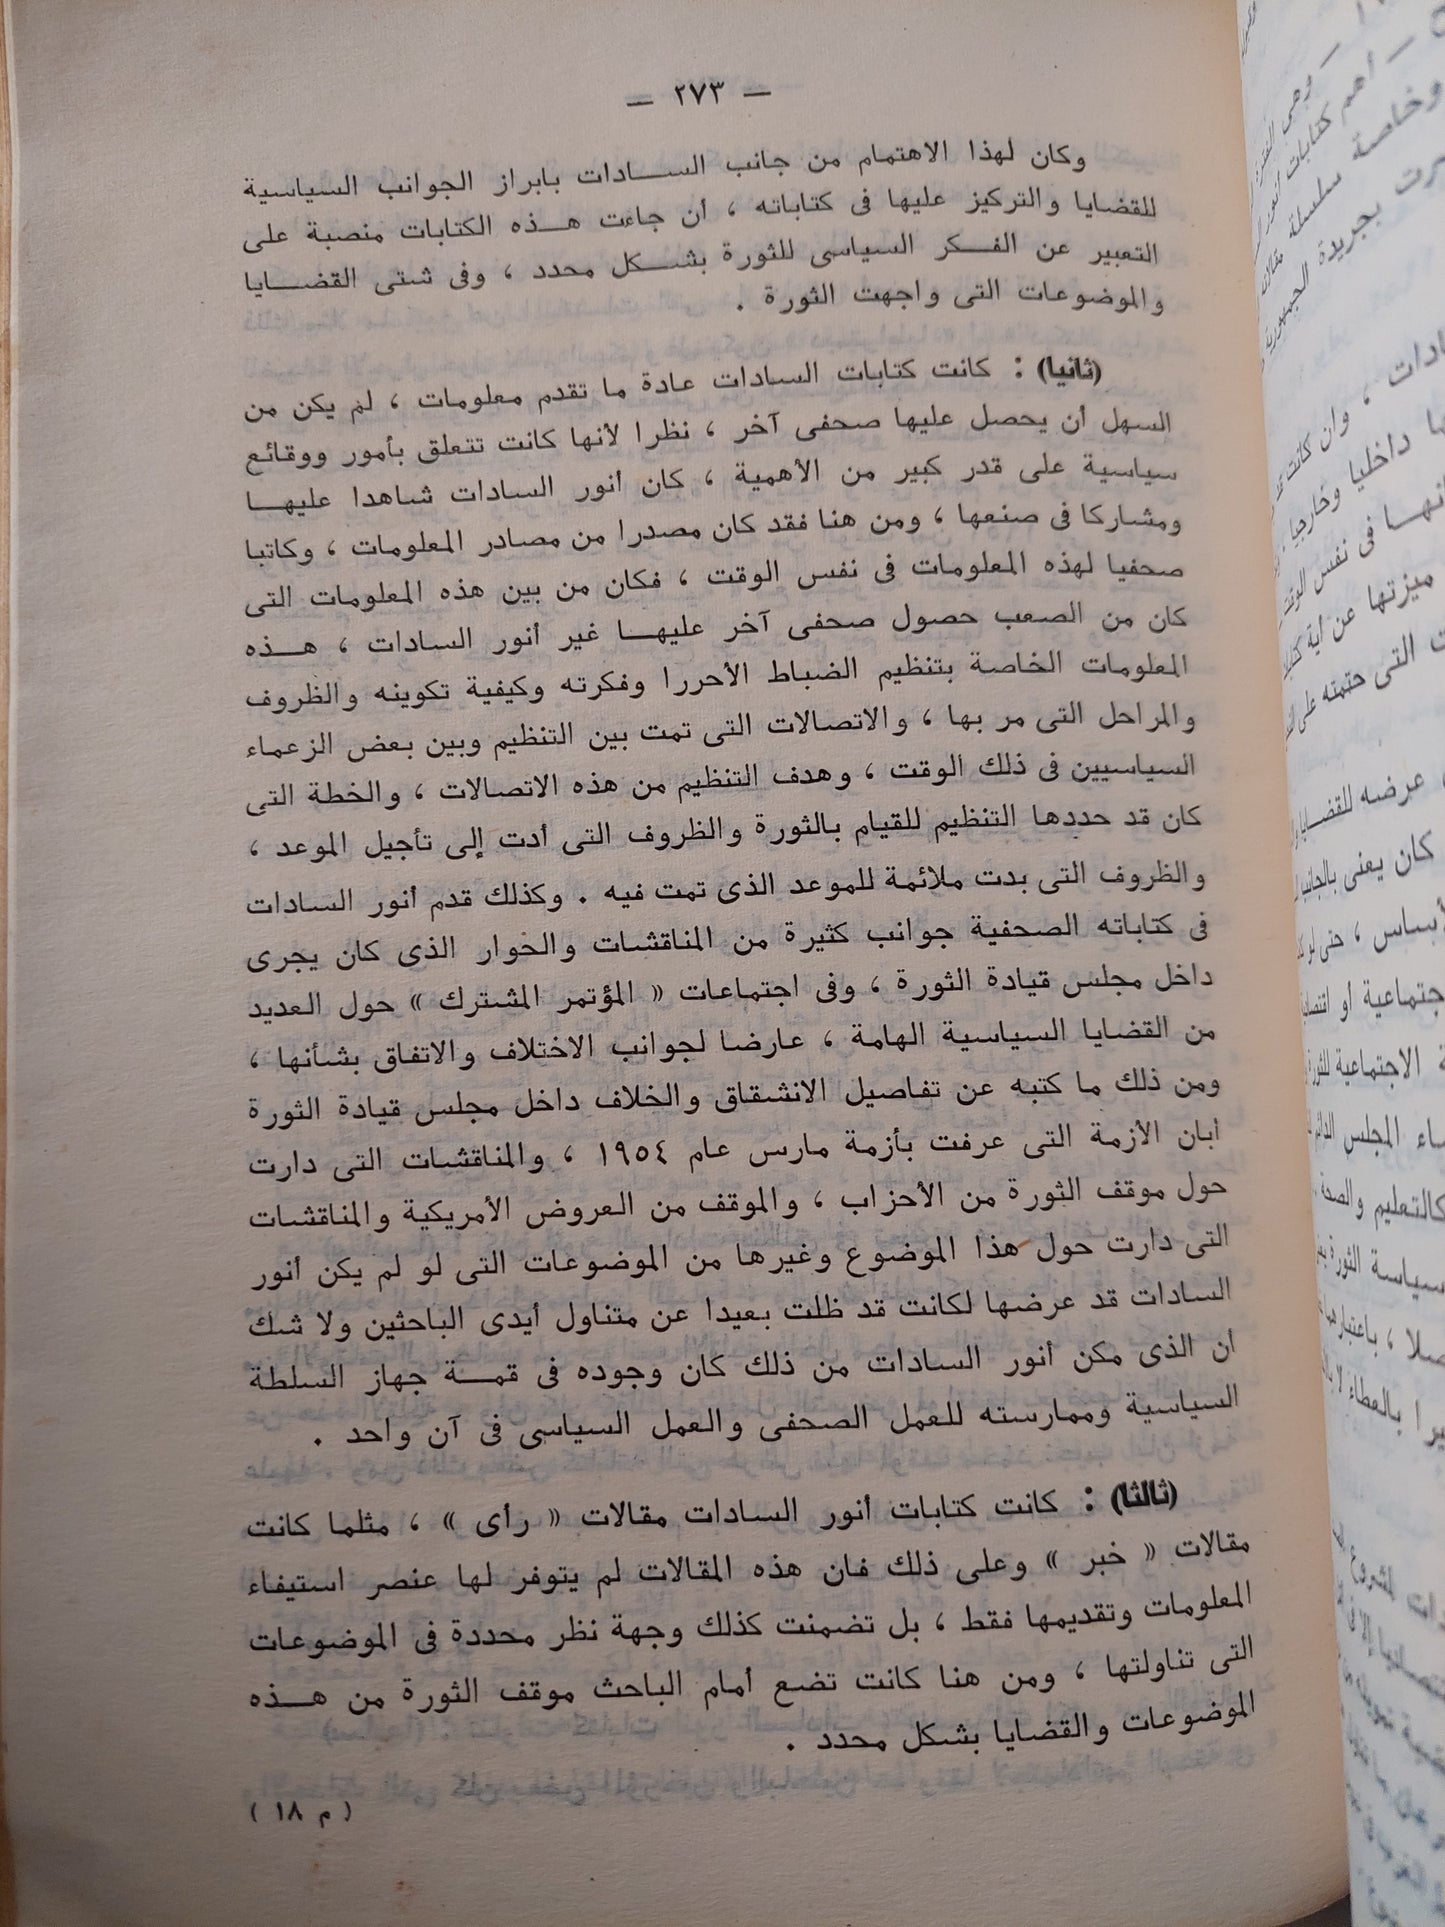 — ٢٧٣ —
وكان لهذا الاهتمام من جانب الســادات بابراز الجوانب السياسية
للقضايا والتركيز عليها فى كتاباته ، أن جاءت هــذه الكتابات منصبة على
التعبير عن الفــكر السياسى للثورة بشــكل محدد ، وفى شتى القضــايا
والموضوعات التى واجهت الثورة .
(ثانيا) : كانت كتابات السادات عادة ما تقدم معلومات ، لم يكن من
السهل أن يحصل عليها صحفى آخر ، نظرا لأنها كانت تتعلق بأمور ووقائع
سياسية على قدر كبير من الأهمية ، كان أنور السادات شاهدا عليهــا
ومشاركا فى صنعها ، ومن هنا فقد كان مصدرا من مصادر المعلومات ، وكاتبا
صحفيا لهذه المعلومات فى نفس الوقت ، فكان من بين هذه المعلومات التى
كان من الصعب حصول صحفى آخر عليهــا غير أنور السادات ، هــذه
المعلومات الخاصة بتنظيم الضباط الأحررا وفكرته وكيفية تكوينه والظروف
والمراحل التى مر بها ، والاتصالات التى تمت بين التنظيم وبين بعض الزعماء
السياسيين فى ذلك الوقت ، وهدف التنظيم من هذه الاتصالات ، والخطة التى
كان قد حددها التنظيم للقيام بالثورة والظروف التى أدت إلى تأجيل الموعد ،
والظروف التى بدت ملائمة للموعد الذى تمت فيه . وكذلك قدم أنور السادات
فى كتاباته الصحفية جوانب كثيرة من المناقشات والحوار الذى كان يجرى
داخل مجلس قيادة الثورة ، وفى اجتماعات « المؤتمر المشترك » حول العديد
من القضايا السياسية الهامة ، عارضا لجوانب الاختلاف والاتفاق بشأنها ،
ومن ذلك ما كتبه عن تفاصيل الانشقاق والخلاف داخل مجلس قيادة الثورة
ابان الأزمة التى عرفت بأزمة مارس عام ١٩٥٤ ، والمناقشات التى دارت
حول موقف الثورة من الأحزاب ، والموقف من العروض الأمريكية والمناقشات
التى دارت حول هذا الموضوع وغيرها من الموضوعات التى لو لم يكن أنور
السادات قد عرضها لكانت قد ظلت بعيدا عن متناول أيدى الباحثين ولا شك
أن الذى مكن أنور السادات من ذلك كان وجوده فى قمــة جهاز السلطة
السياسية وممارسته للعمل الصحفى والعمل السياسى فى آن واحد .
(ثالثا) : كانت كتابات أنور السادات مقالات « رأى » ، مثلما كانت
مقالات « خبر » وعلى ذلك فان هذه المقالات لم يتوفر لها عنصر استيفاء
المعلومات وتقديمها فقط ، بل تضمنت كذلك وجهة نظر محددة فى الموضوعات
التى تناولتها ، ومن هنا كانت تضع أمام الباحث موقف الثورة من هــذه
الموضوعات والقضايا بشكل محدد .
( م ١٨ )